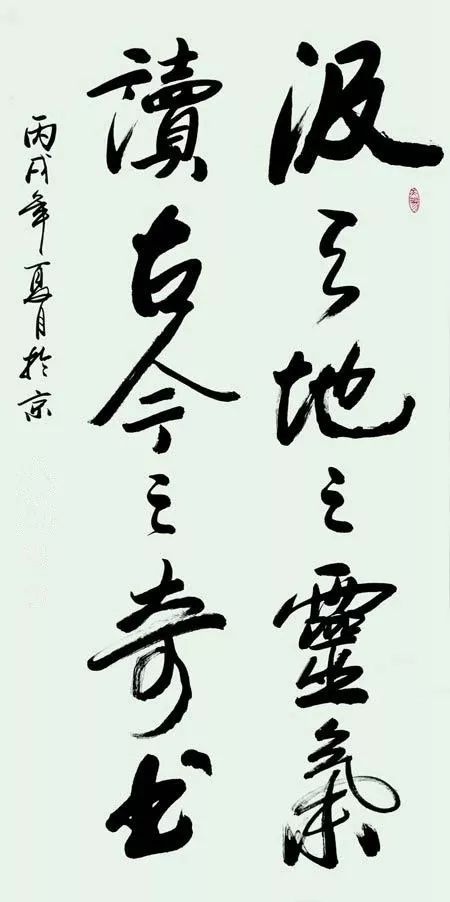 汲天地之靈氣
讀古今之奇书
丙戌年夏月於京